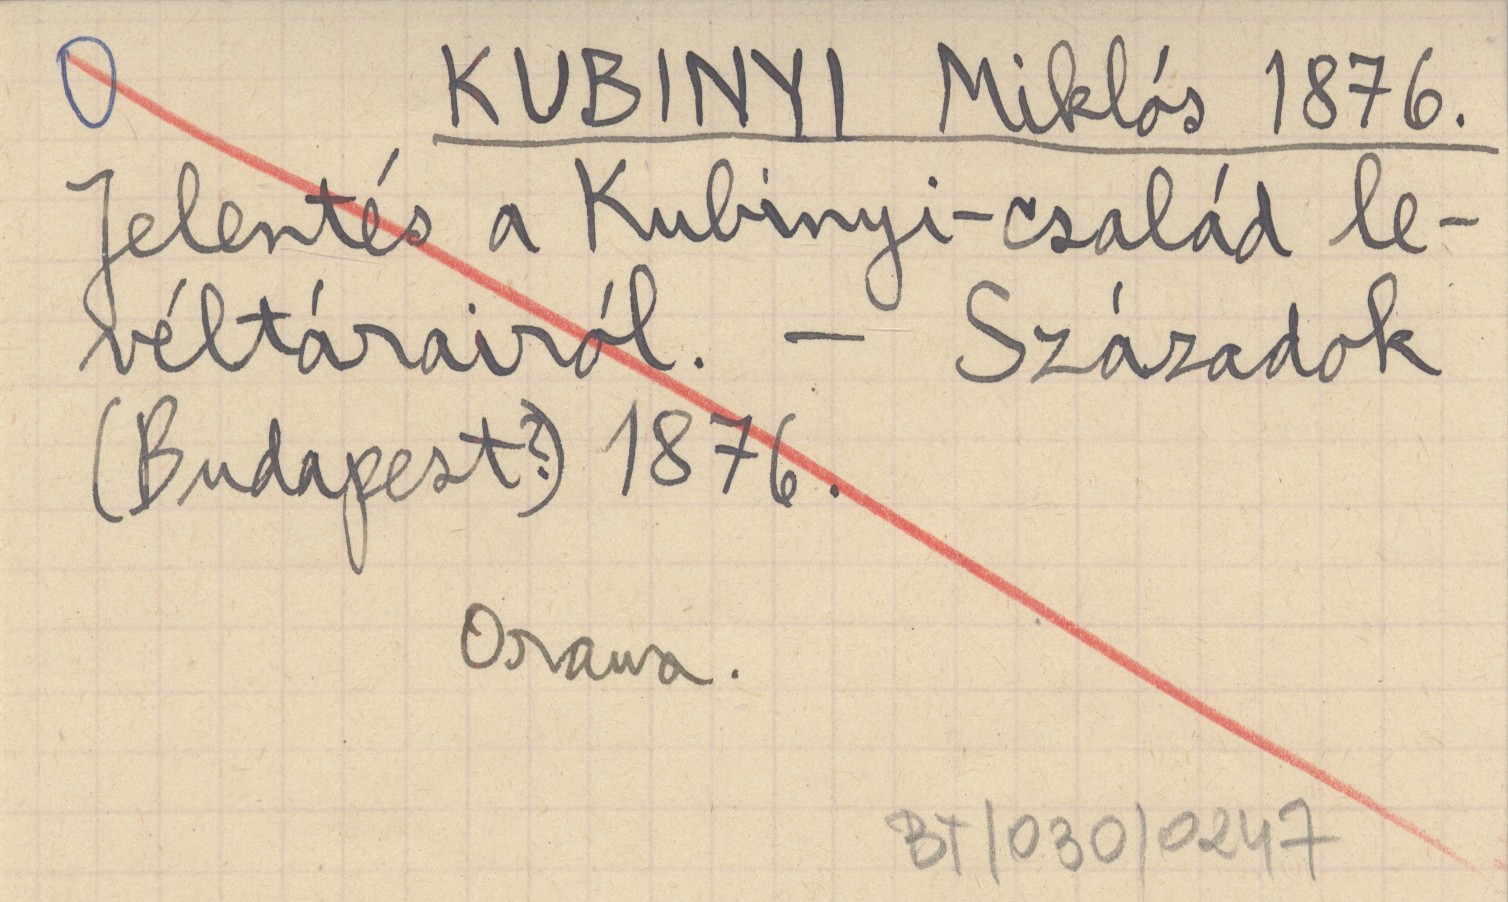 O KUBINYI Miklós 1876.
Jelentés a Kubinyi-család le-
véltárairól. — Századok
(Budapest?) 1876.
Orawa.
BT/030/0247